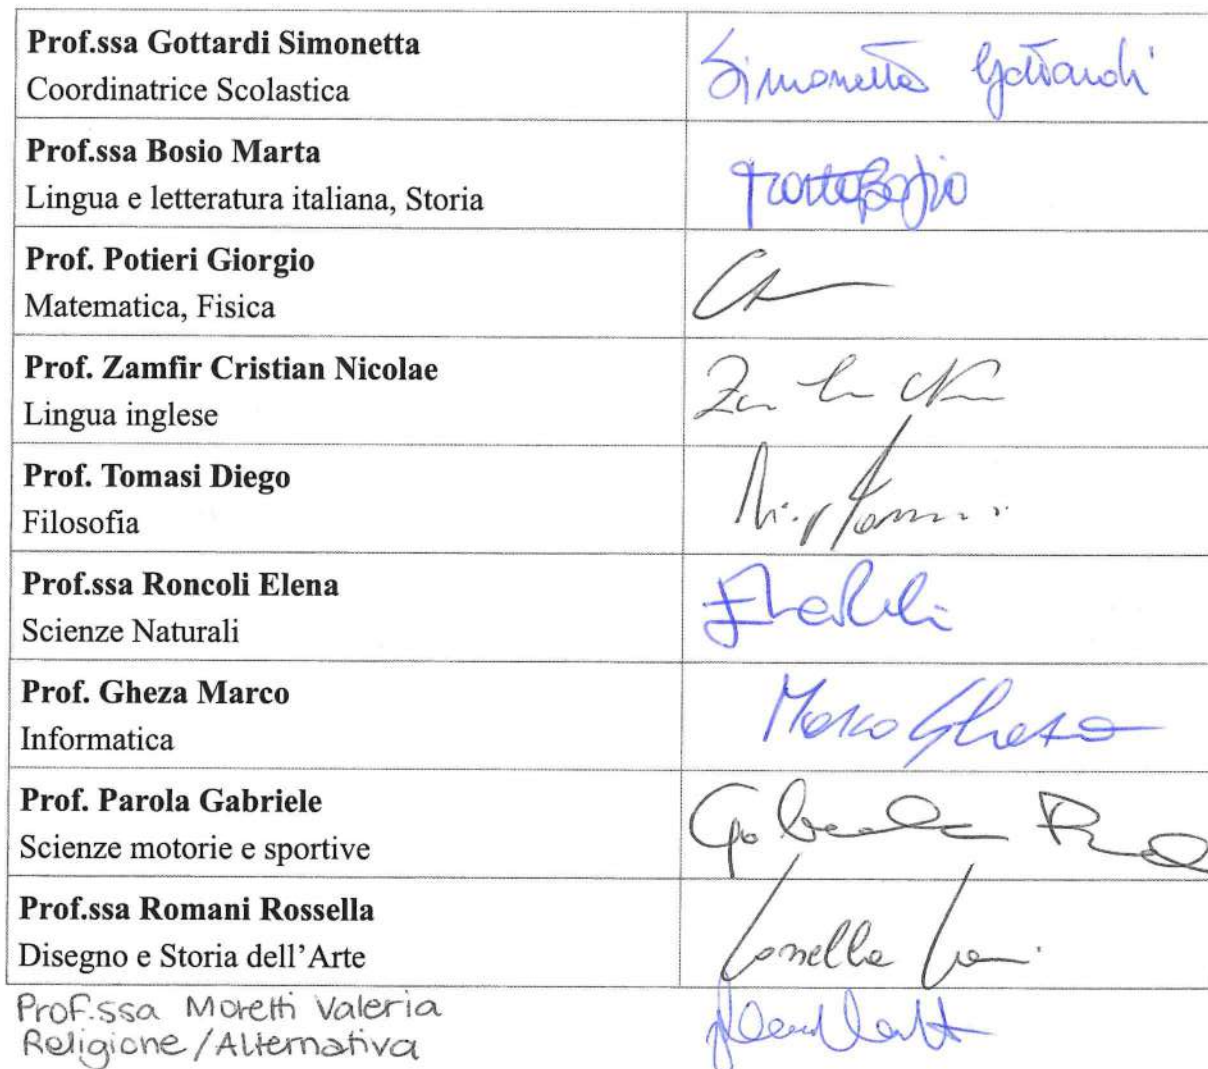 Prof.ssa Gottardi Simonetta
Coordinatrice Scolastica
Simonetta Gottardi
Prof.ssa Bosio Marta
Lingua e letteratura italiana, Storia
Marta Bosio
Prof. Potieri Giorgio
Matematica, Fisica
Prof. Zamfir Cristian Nicolae
Lingua inglese
Prof. Tomasi Diego
Filosofia
Prof.ssa Roncoli Elena
Scienze Naturali
Prof. Gheza Marco
Informatica
Marco Gheza
Prof. Parola Gabriele
Scienze motorie e sportive
Prof.ssa Romani Rossella
Disegno e Storia dell’Arte
Prof.ssa Moretti Valeria
Religione/Alternativa